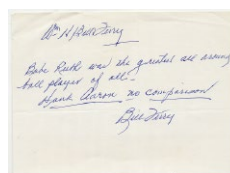 Wm H "Bill" Terry
Babe Ruth was the greatest all around
ball player of all -
Hank Aaron no comparison
Bill Terry